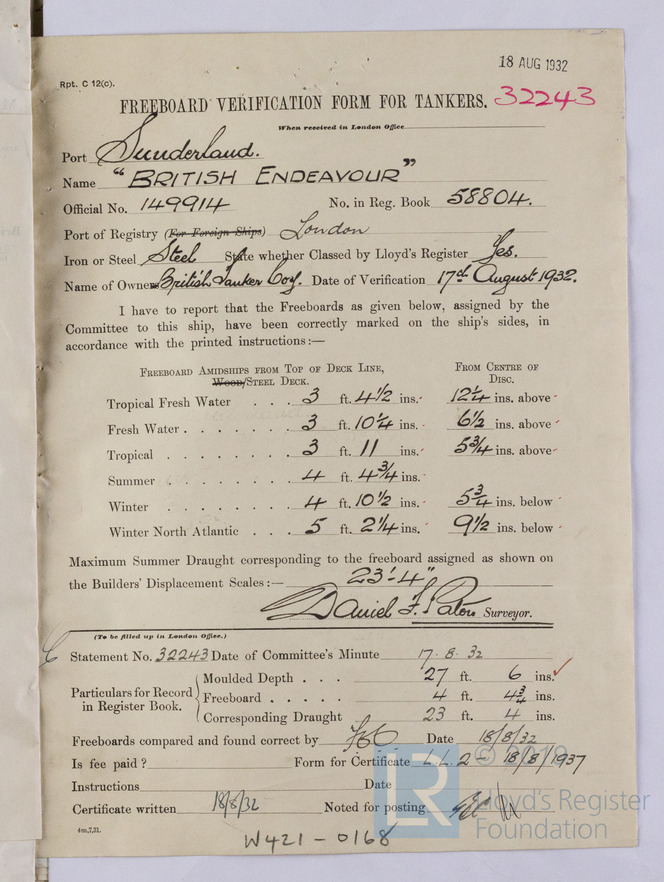 18 AUG 1932
Rpt. C 12(c).
FREEBOARD VERIFICATION FORM FOR TANKERS. 32243
When received in London Office
Port Sunderland.
Name "BRITISH ENDEAVOUR"
Official No. 149914 No. in Reg. Book 58804.
Port of Registry (For Foreign Ships) London
Iron or Steel Steel State whether Classed by Lloyd's Register Yes.
Name of Owners British Tanker Coy. Date of Verification 17th August 1932.
I have to report that the Freeboards as given below, assigned by the
Committee to this ship, have been correctly marked on the ship's sides, in
accordance with the printed instructions:—
FREEBOARD AMIDSHIPS FROM TOP OF DECK LINE, FROM CENTRE OF
Wood/STEEL DECK. DISC.
Tropical Fresh Water . . . 3 ft. 4 1/2 ins. 12 1/4 ins. above
Fresh Water . . . . . . . 3 ft. 10 1/4 ins. 6 1/2 ins. above
Tropical . . . . . . . . 3 ft. 11 ins. 5 3/4 ins. above
Summer . . . . . . . . 4 ft. 4 3/4 ins.
Winter . . . . . . . . 4 ft. 10 1/2 ins. 5 3/4 ins. below
Winter North Atlantic . . . 5 ft. 2 1/4 ins. 9 1/2 ins. below
Maximum Summer Draught corresponding to the freeboard assigned as shown on
the Builders' Displacement Scales:— 23'-4"
Daniel F. Paton Surveyor.
(To be filled up in London Office.)
Statement No. 32243 Date of Committee's Minute 17.8.32
Particulars for Record in Register Book.
Moulded Depth . . . 27 ft. 6 ins.
Freeboard . . . . . 4 ft. 4 3/4 ins.
Corresponding Draught 23 ft. 4 ins.
Freeboards compared and found correct by Date 18/8/32
Is fee paid? Form for Certificate L.L.2 - 18/8/1937
Instructions Date
Certificate written 18/8/32 Noted for posting
4m,7,31.
W421-0168
© 2019
LR
Lloyd's Register
Foundation